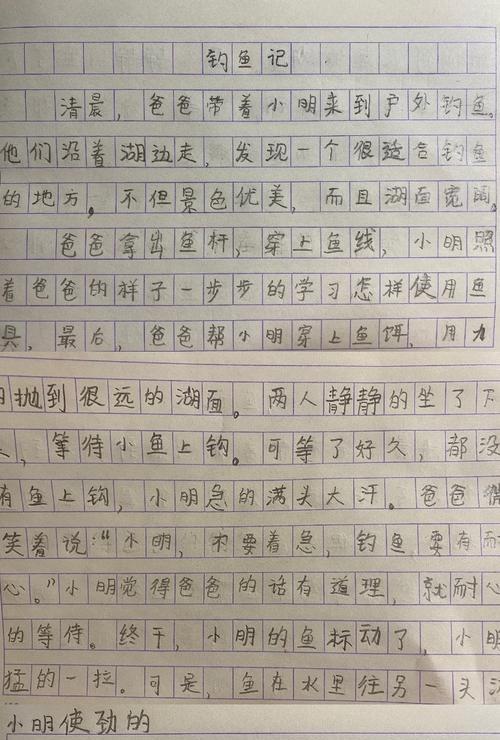 钓鱼记
清晨，爸爸带着小明来到户外钓鱼。
他们沿着湖边走，发现一个很适合钓鱼
的地方。不但景色优美，而且湖面宽阔。
爸爸拿出鱼杆，穿上鱼线，小明照
着爸爸的样子一步步的学习怎样使用鱼
具，最后，爸爸帮小明穿上鱼饵，用力
的抛到很远的湖面。两人静静的坐了下
，等待小鱼上钩。可等了好久，都没
有鱼上钩，小明急的满头大汗。爸爸微
笑着说：“小明，不要着急，钓鱼要有耐
心。”小明觉得爸爸的话有道理，就耐心
的等待。终于，小明的鱼标动了，小明
猛的一拉。可是，鱼在水里往另一头
小明使劲的